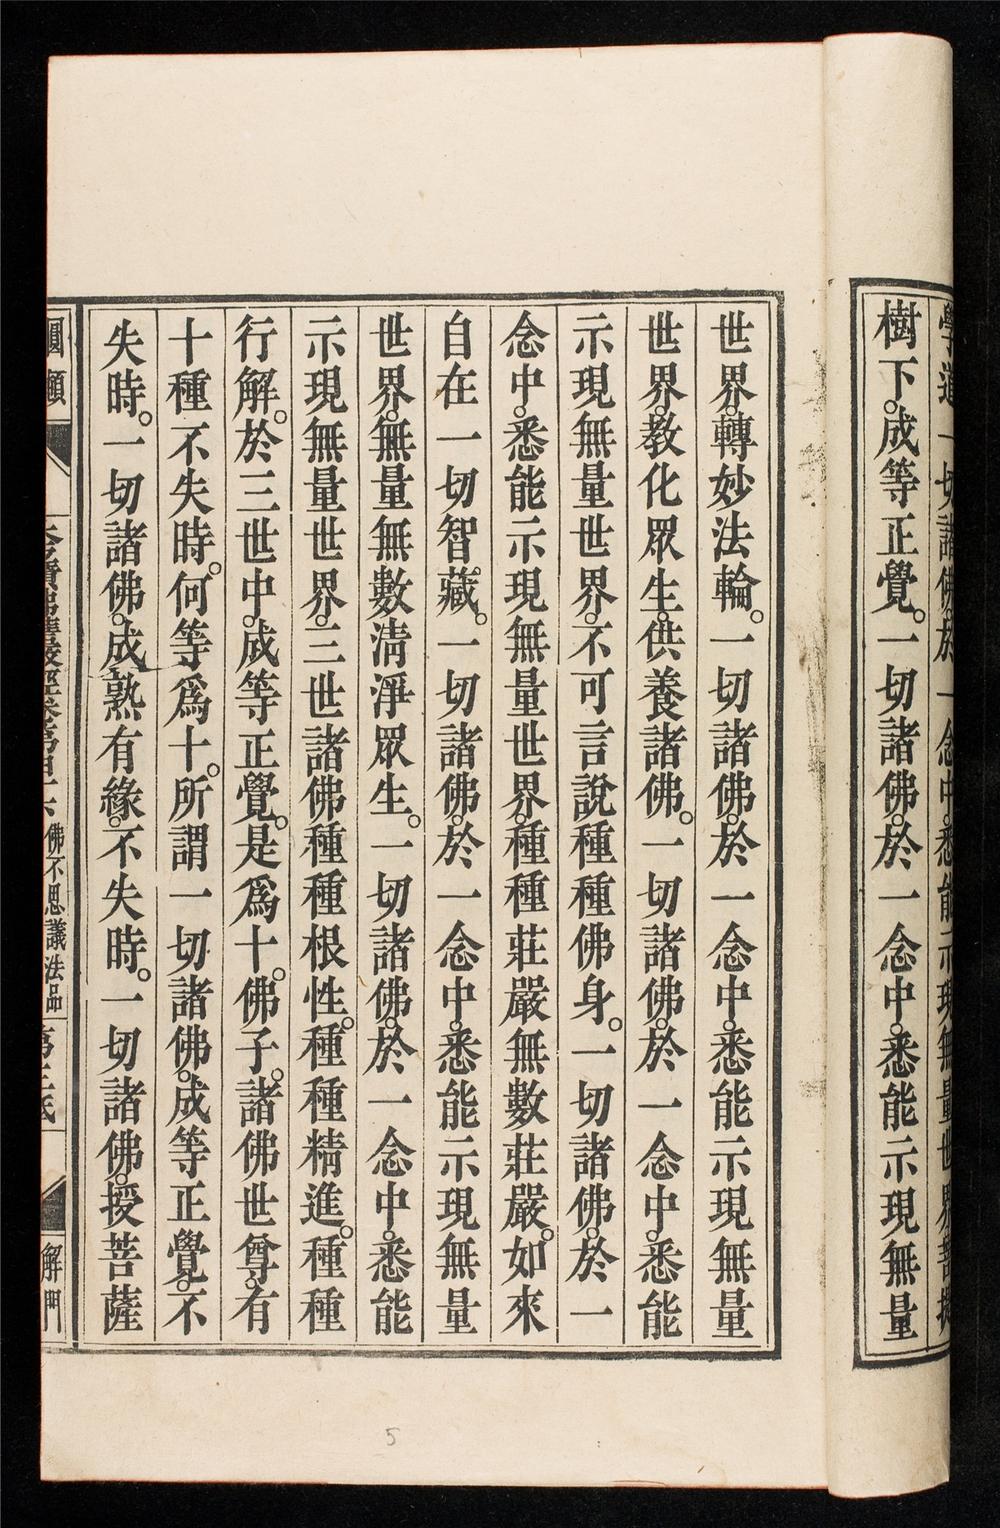 學道一切諸佛於一念中悉能示現無量世界菩提
樹下。成等正覺。一切諸佛。於一念中。悉能示現無量
世界。轉妙法輪。一切諸佛。於一念中。悉能示現無量
世界。教化眾生。供養諸佛。一切諸佛。於一念中。悉能
示現無量世界。不可言說種種佛身。一切諸佛。於一
念中。悉能示現無量世界。種種莊嚴無數莊嚴。如來
自在一切智藏。一切諸佛。於一念中。悉能示現無量
世界。無量無數清淨眾生。一切諸佛。於一念中。悉能
示現無量世界。三世諸佛種種根性。種種精進。種種
行解。於三世中。成等正覺。是為十。佛子。諸佛世尊。有
十種不失時。何等為十。所謂一切諸佛。成等正覺。不
失時。一切諸佛。成熟有緣。不失時。一切諸佛。授菩薩
圓頓 大方廣佛華嚴經卷第四十六 佛不思議法品 解門
5